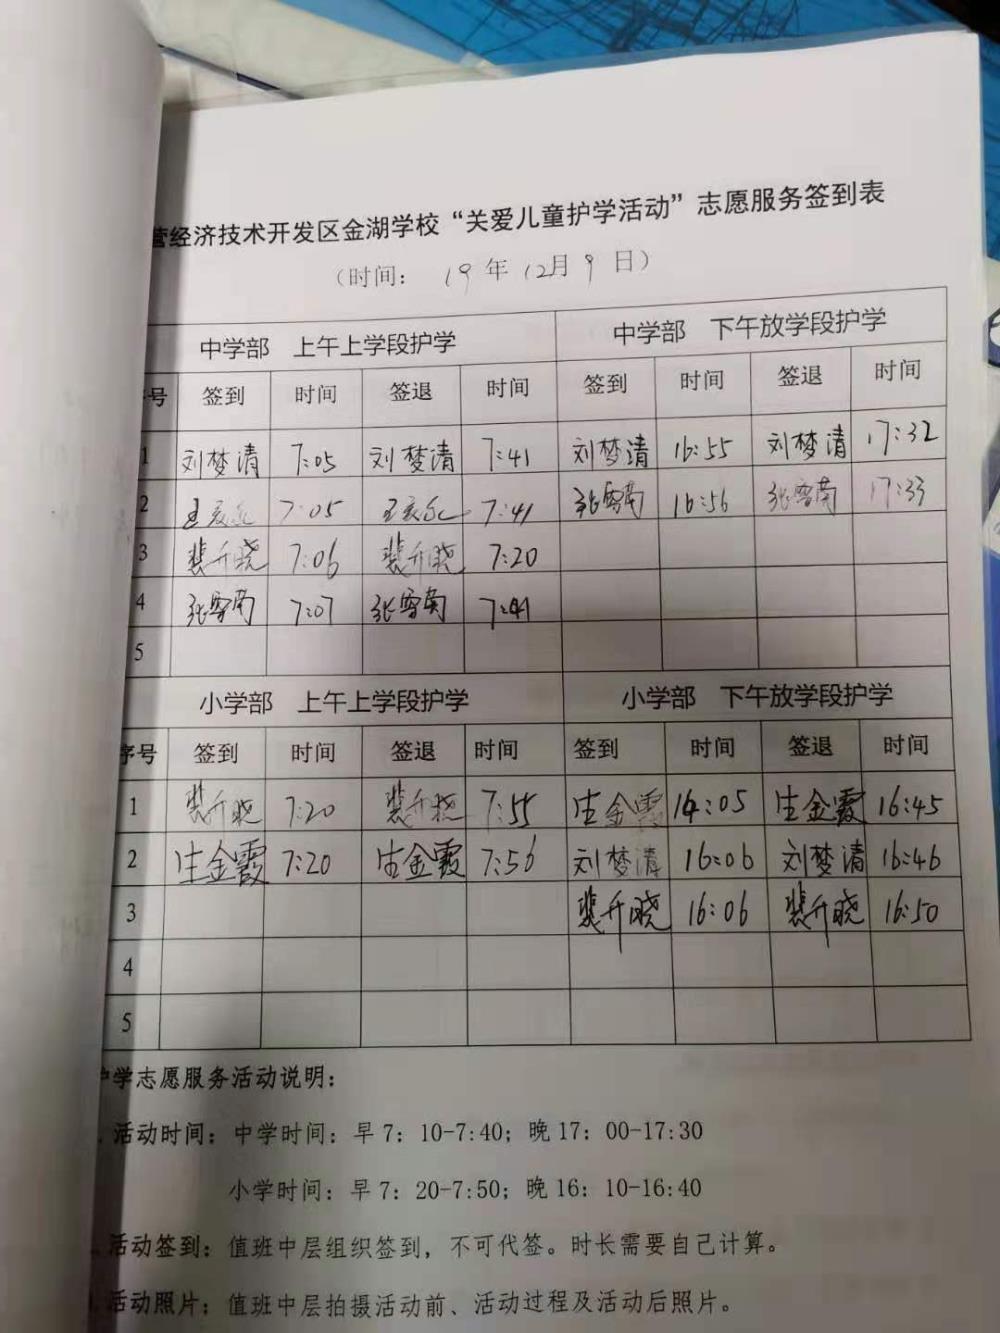 营经济技术开发区金湖学校“关爱儿童护学活动”志愿服务签到表
（时间： 19 年 12月 9 日）
中学部 上午上学段护学 中学部 下午放学段护学
号 签到 时间 签退 时间 签到 时间 签退 时间
1 刘梦清 7:05 刘梦清 7:41 刘梦清 16:55 刘梦清 17:32
2 7:05 7:41 张雪菊 16:56 张雪菊 17:33
3 裴升晓 7:06 裴升晓 7:20
4 张雪菊 7:07 张雪菊 7:41
5
小学部 上午上学段护学 小学部 下午放学段护学
序号 签到 时间 签退 时间 签到 时间 签退 时间
1 裴升晓 7:20 裴升晓 7:55 生金霞 14:05 生金霞 16:45
2 生金霞 7:20 生金霞 7:56 刘梦清 16:06 刘梦清 16:46
3 裴升晓 16:06 裴升晓 16:50
4
5
护学志愿服务活动说明：
活动时间：中学时间：早 7：10-7:40；晚 17：00-17:30
小学时间：早 7：20-7:50；晚 16：10-16:40
活动签到：值班中层组织签到，不可代签。时长需要自己计算。
活动照片：值班中层拍摄活动前、活动过程及活动后照片。